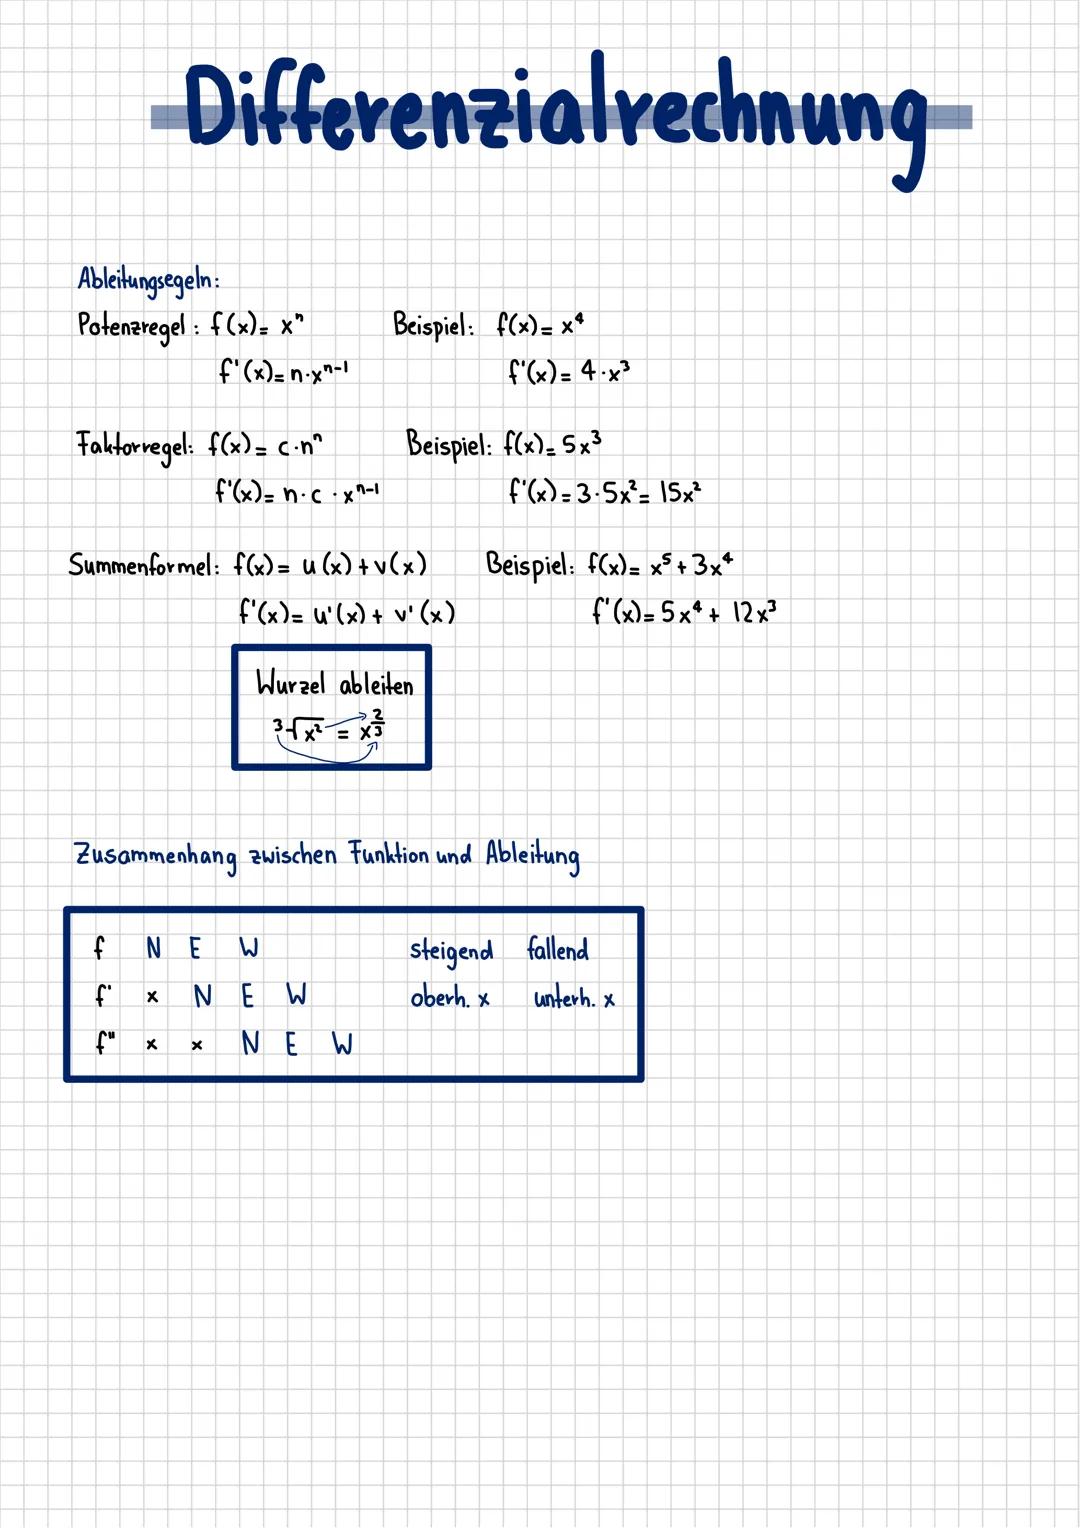 Differenzialrechnung
Ableitungsegeln:
Potenzregel: f(x)= xⁿ Beispiel: f(x)= x⁴
f'(x)= n·xⁿ⁻¹ f'(x)= 4·x³
Faktorregel: f(x)= c·nⁿ Beispiel: f(x)= 5x³
f'(x)= n·c·xⁿ⁻¹ f'(x)= 3·5x²= 15x²
Summenformel: f(x)= u(x)+v(x) Beispiel: f(x)= x⁵+3x⁴
f'(x)= u'(x)+ v'(x) f'(x)= 5x⁴+ 12x³
Wurzel ableiten
³√x² = x^(2/3)
Zusammenhang zwischen Funktion und Ableitung
f N E W steigend fallend
f' x N E W oberh. x unterh. x
f" x x N E W